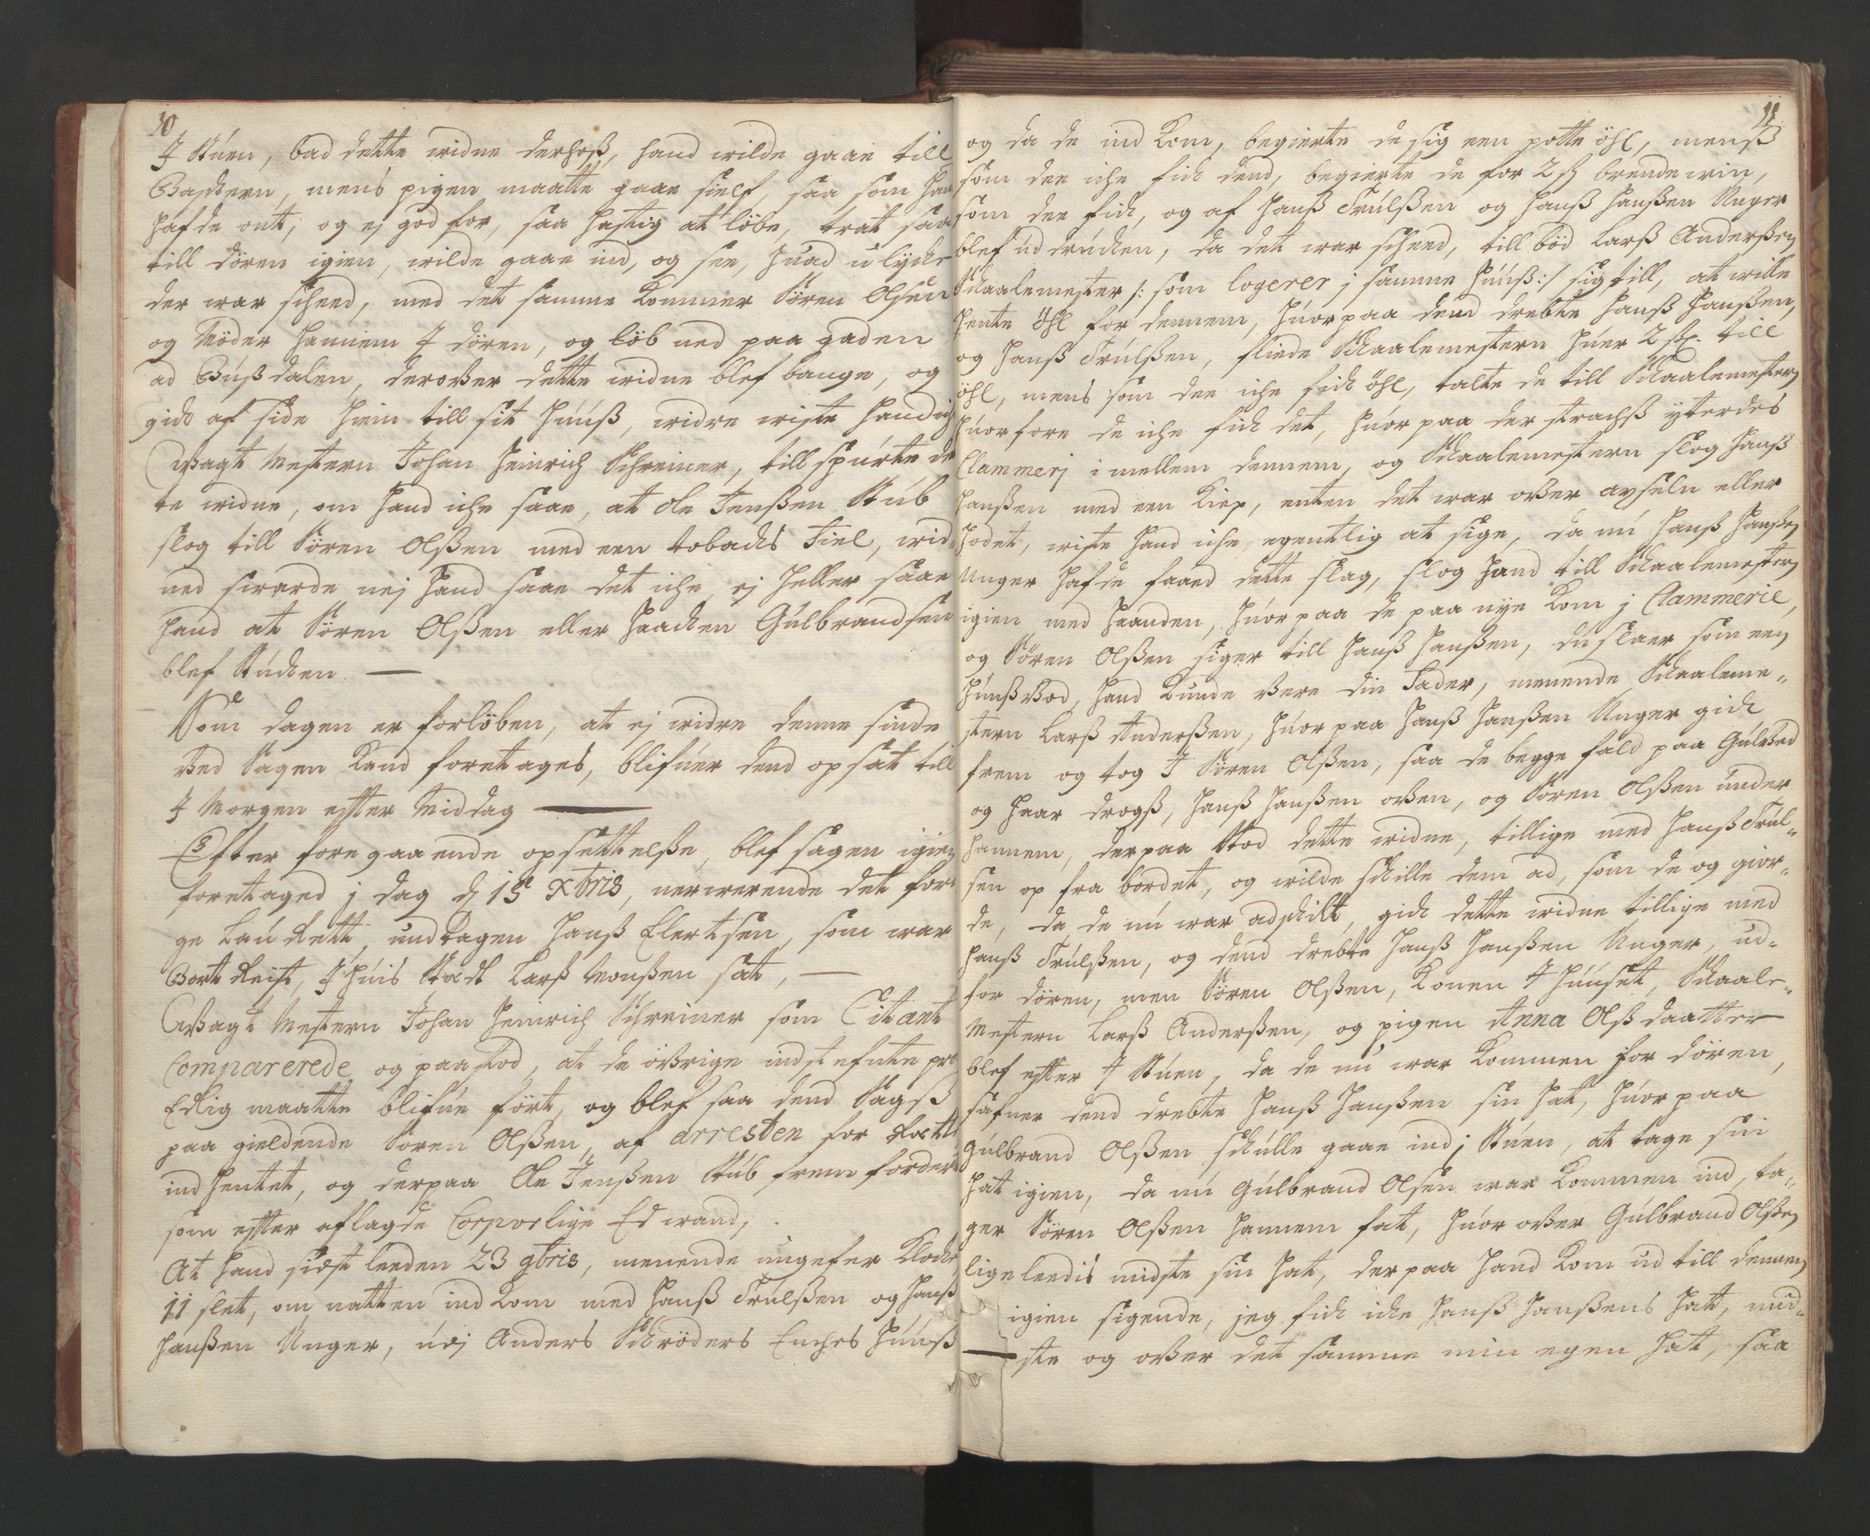 10
J Stuen, bad dette vidne derhoß, hand vilde gaae till
Badskern, mens pigen maatte gaae sielf, saa som han
hafde ont, og ej god for, saa hastig at löbe, trat saa
till dören igien, vilde gaae ind, og see, huad ulycke
der war scheed, med det samme kommer Sören Olsen
og Möder hannem J dören, og löb ned paa gaden
ad Bußdalen, derofver dette vidne blef bange, og
gick af side hiem till sit huuß, vidre viste hand ich
Wagt Mestern Johan Heinrich Schreiner, tillspurte det
te vidne, om hand iche saae, at Ole Jenßen Stub
slog till Sören Olßen med een tobachs Fiel, vid¬
ned svarede nej hand saae det iche, ej heller saae
hand at Sören Olßen eller Haachen Gulbrandsen
blef Stucken. —
Som dagen er forlöben, at ej vidre denne sinde
ved Sagen kand foretages, blifuer dend opsat till
J Morgen efter Middag —
Efter foregaaende opsettelße, blef sagen igien
foretaged j dag d 15 Xbris, nerwerende det for
ge Laurett, undtagen Hanß Elertsen, som war
Bort Reist, J huis Stedt Larß Monßen sat, —
Wagt Mestern Johan Heinrich Schreiner som Citant
Comparerede og paastod, at de öfvrige indstefnte pro
Edlig maatte blifue fört, og blef saa dend Sagß
paa gieldende Sören Olßen, af arresten for Rætte
ind hentet, og derpaa Ole Jenßen Stub frem fordert
som efter aflagde Corporlige Ed wand,
At hand sidst leeden 23 9bris, menende ungefer Klocke
11 slet, om natten ind kom med Hanß Trulßen og Hanß
Hanßen Unger, udj Anders Schröders Enches huuß
11
og da de ind kom, begierte de sig een potte öhl, menß
som dee iche fick dend, begierte de for 2 ß brendewin,
som dee fick, og af Hanß Trulßen og Hanß Hanßen Unger
blef ud drucken, da det war scheed, till böd Larß Anderßen
Skaalemester /: som logerer j samme huuß:/ sig till, at wille
hente öhl for dennem, huorpaa dend drebte Hanß Hanßen,
og Hanß Trulßen, fliede Skaalemestern huer 2 sk. till
öhl, mens som dee iche fick öhl, talte de till Skaalemestern
huorfore de iche fick det, huorpaa der strachß yterdes
Clammerj imellem dennem, og Skaalemestern slog Hanß
Hanßen med een kiep, enten det war ofver axseln eller
hodet, viste hand iche egentlig at sige, da nu Hanß Hanßen
Unger hafde faaed dette slag, slog hand till Skaalemestern
igien med haanden, huorpaa de paa nye kom j Clammerie,
og Sören Olßen siger till Hanß Hanßen, du slaer som een
hunßvod, hand kunde were din Fader, menende Skaaleme¬
stern Larß Anderßen, huorpaa Hanß Hanßen Unger gick
frem og tog J Sören Olßen, saa de begge fald paa Gulvved
og haar drogß, Hanß Hanßen ofven, og Sören Olßen under
hannem, derpaa stod dette vidne, tillige med Hanß Trul¬
sen op fra bordet, og vilde schille dem ad, som de og gior¬
de, da de nu war adschilt, gick dette vidne tillige med
Hanß Trulßen, og dend drebte Hanß Hanßen Unger, ud¬
for dören, men Sören Olßen, Konen J huuset, Skaale¬
Mestern Larß Anderßen, og pigen Anna Olßdaatter
blef efter J Stuen, da de nu war kommen for dören,
safner dend drebte Hanß Hanßen sin hat, huorpaa
Gulbrand Olßen schulle gaae ind j Stuen, at tage sin
hat igien, da nu Gulbrand Olsen war kommen ind, ta¬
ger Sören Olßen hannem fat, huor ofver Gulbrand Olßen
ligeleedis midste sin hat, derpaa hand kom ud till dennem
igien sigende, jeg fick iche Hanß Hanßens hatt, mid¬
ste og ofver det samme min egen hat, saa